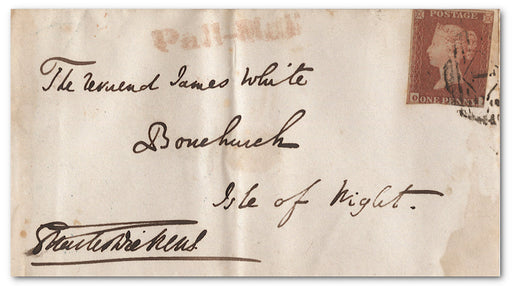 Pall-Mall
POSTAGE
ONE PENNY
The reverend James White
Bonchurch
Isle of Wight.
Charles Dickens